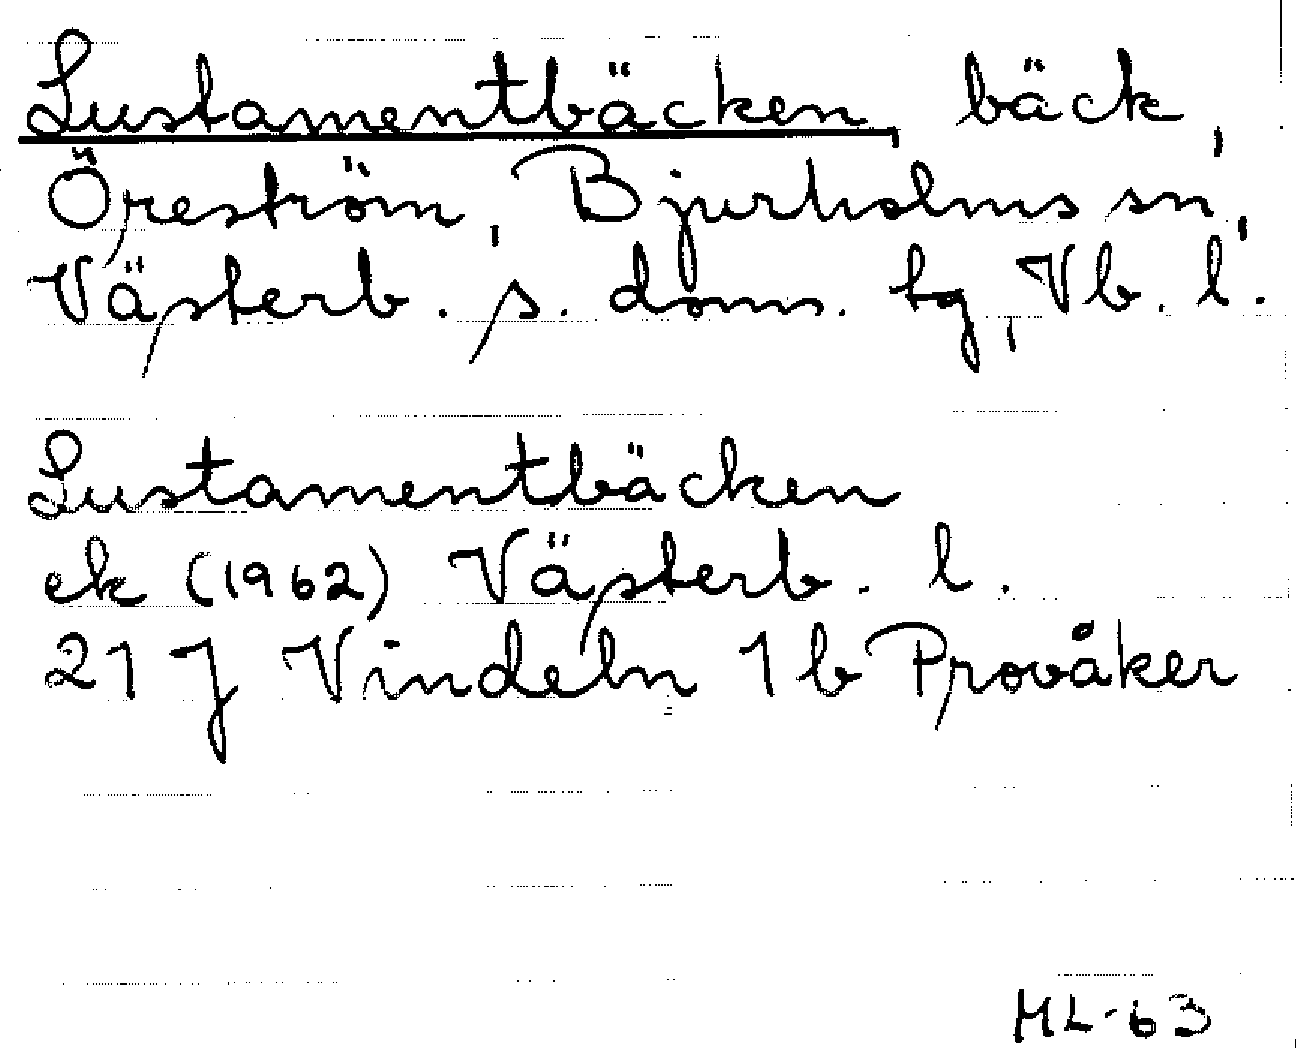 Lustamentbäcken, bäck,
Öreström, Bjurholms sn,
Västerb. s. doms. tg, Vb. l.
Lustamentbäcken
ek (1962) Västerb. l.
21 J Vindeln 1 b Provåker
ML-63